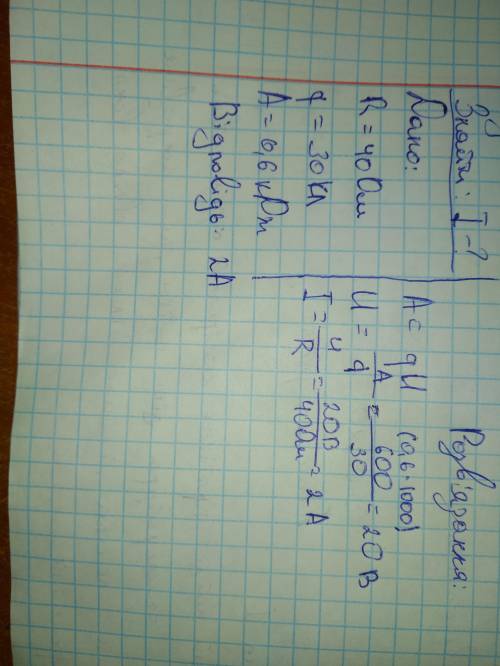 Знайти: I - ?
Дано:
R = 40 Ом
q = 30 Кл
A = 0,6 кДж
Відповідь: 2 А
Розв'язання:
A = qU (0,6·1000)
U = A/q = 600/30 = 20 В
I = U/R = 20В/40Ом = 2 А